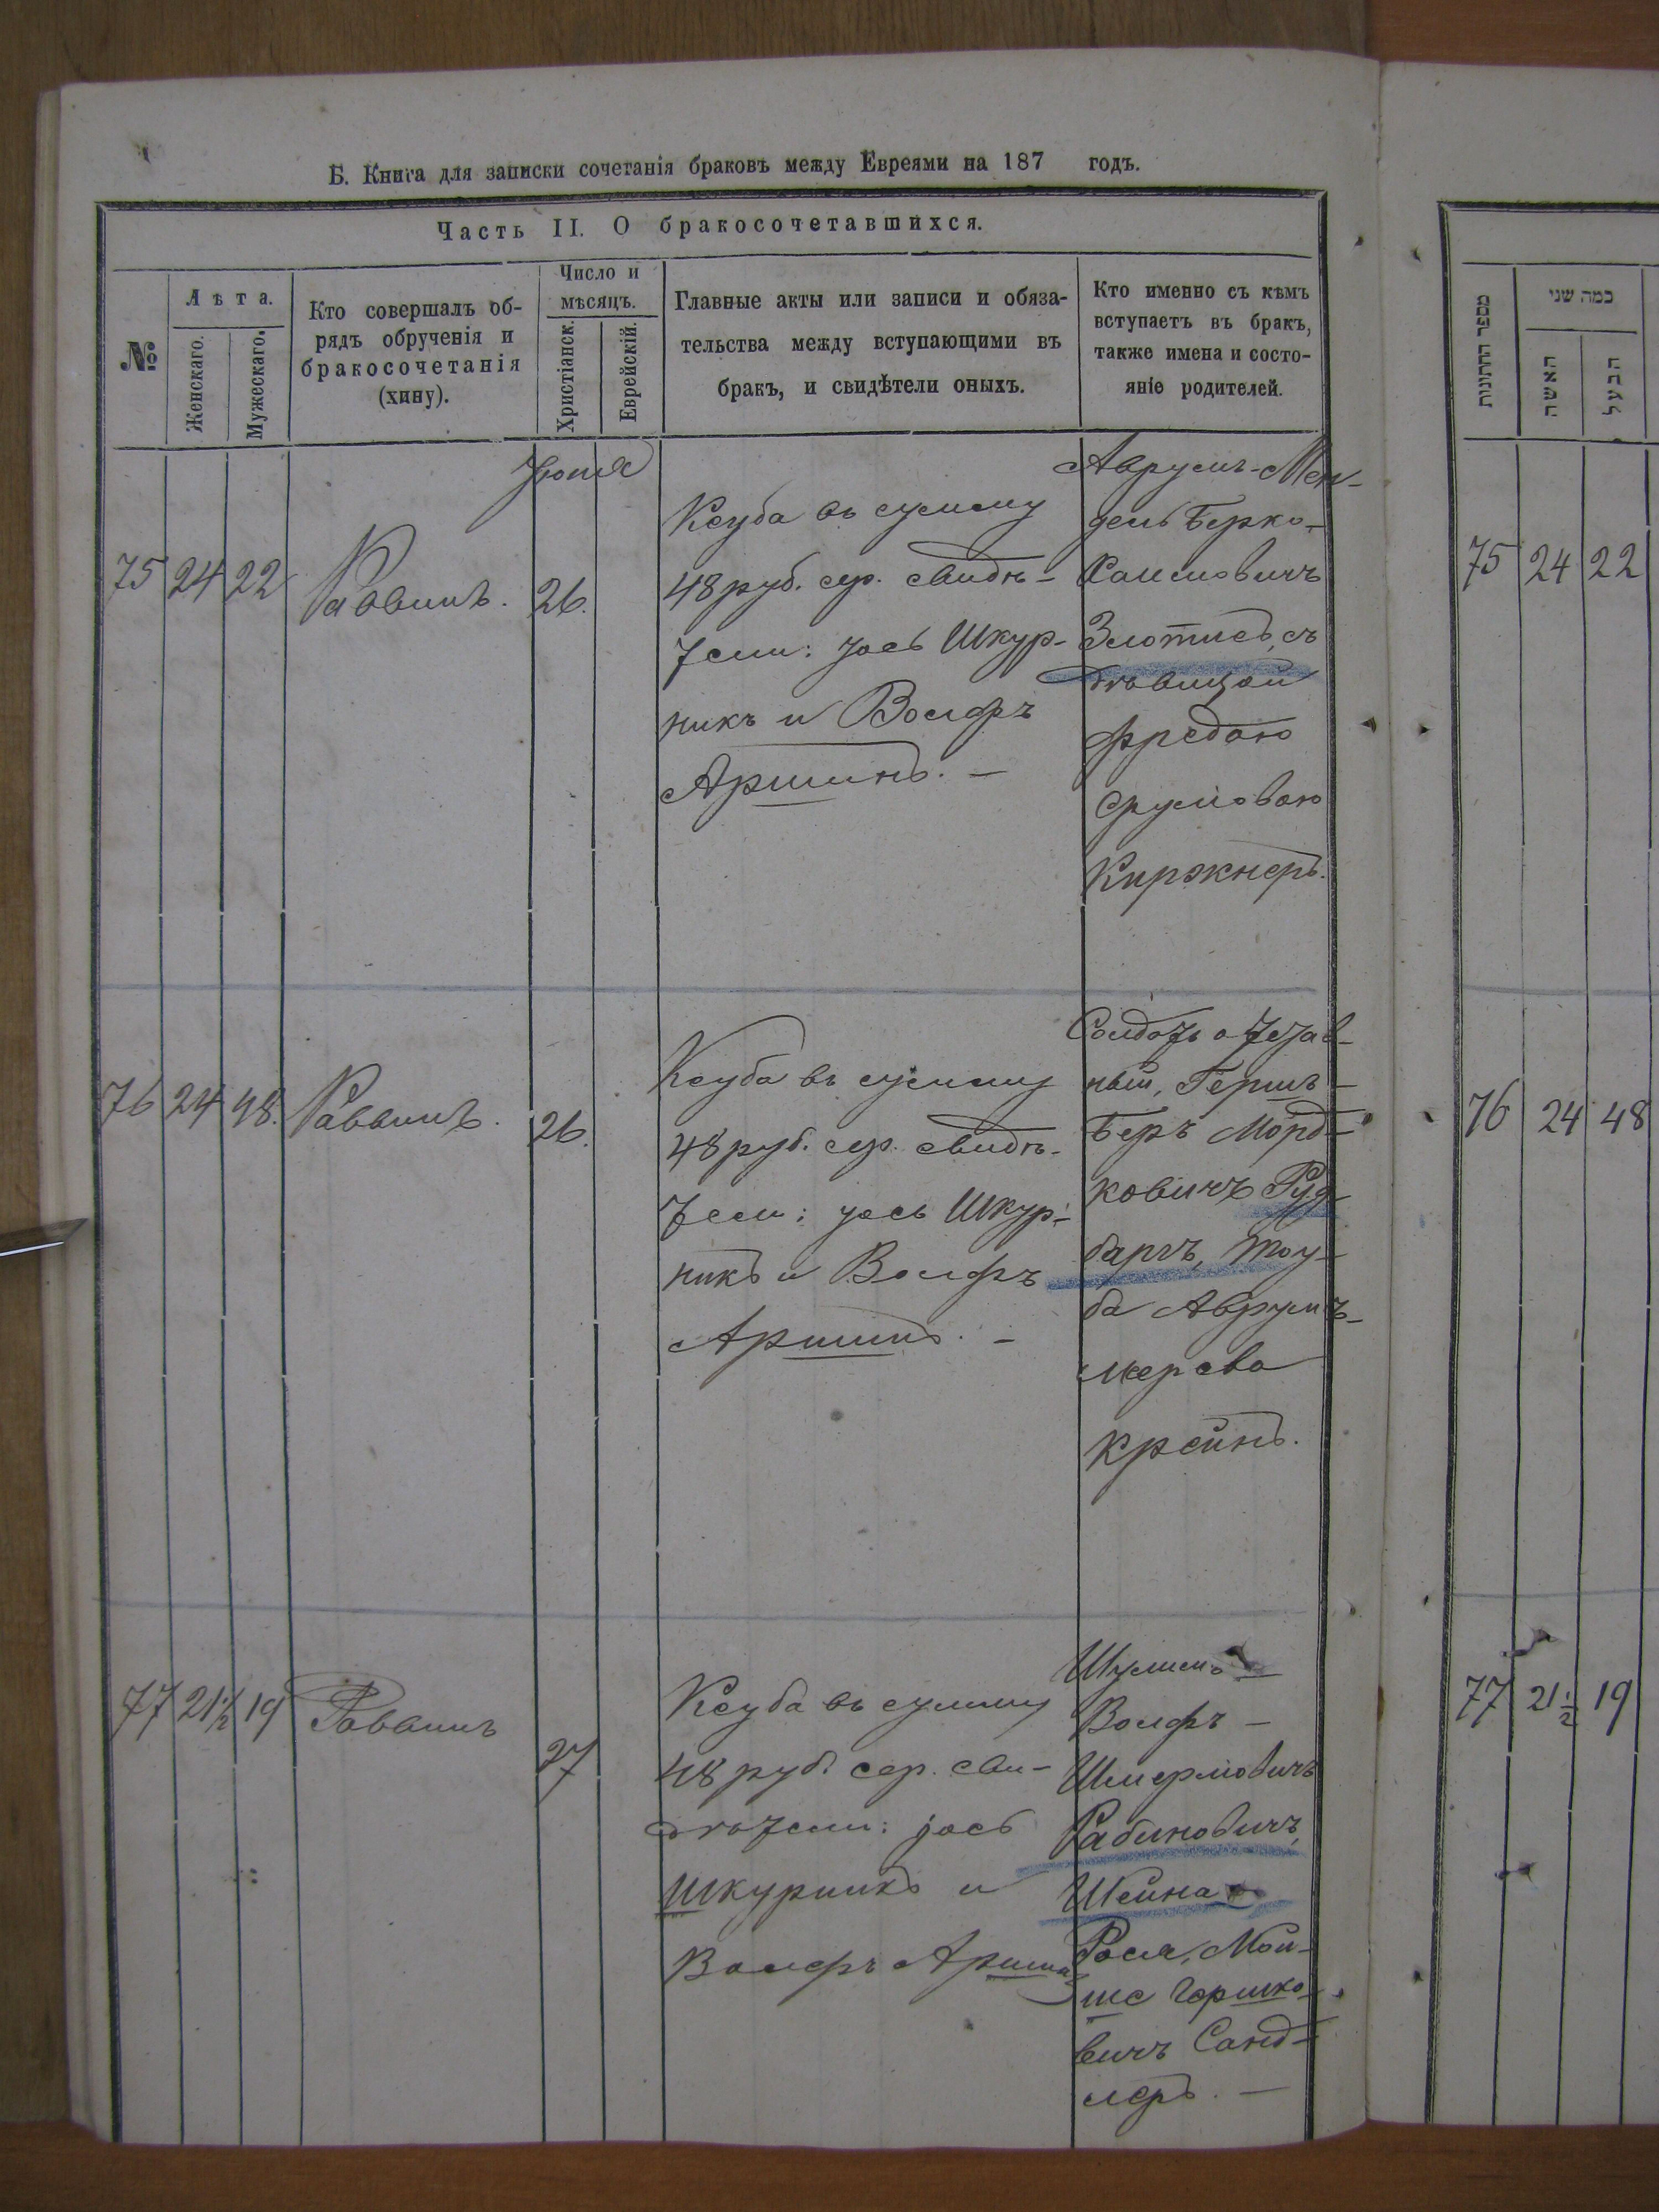 Б. Книга для записки сочетанія браковъ между Евреями на 187 годъ.
Часть II. О бракосочетавшихся.
№
Лѣта.
Женскаго.
Мужескаго.
Кто совершалъ об-
рядъ обрученія и
бракосочетанія
(хипу).
Число и
мѣсяцъ.
Христіанск.
Еврейскій.
Главные акты или записи и обяза-
тельства между вступающими въ
бракъ, и свидѣтели оныхъ.
Кто именно съ кѣмъ
вступаетъ въ бракъ,
также имена и состо-
яніе родителей.
75 24 22
Раввинъ.
26.
Ксуба въ сумму
48 руб. сер. свидѣ-
тели: Іось Шкур-
никъ и Волфъ
Аршинъ. —
Аврумъ-Мен-
дель Берко-
Злотисъ, съ
дѣвицой
Фредою
Срумовою
Киржнеръ.
76 24 48.
Раввинъ.
26.
Ксуба въ сумму
48 руб. сер. свидѣ-
тели: Іось Шкур-
никъ и Волфъ
Аршинъ. —
Солдатъ отстав-
ный, Гершъ-
Беръ Морд-
ковичъ Гуд-
баргъ, Тоу-
ба Аврумъ-
мерова
Крейнъ.
77 21½ 19
Раввинъ
27
Ксуба въ сумму
48 руб. сер. сви-
дѣтели: Іось
Шкурникъ и
Волфъ Аршинъ
Шулимъ —
Волфъ —
Шмерковичъ
Рабиновичъ,
Шейна —
Рося, Мов-
ше Гершко-
вичъ Санд-
леръ. —
מספר החתונות
כמה שני
האשה
הבעל
75 24 22
76 24 48
77 21½ 19